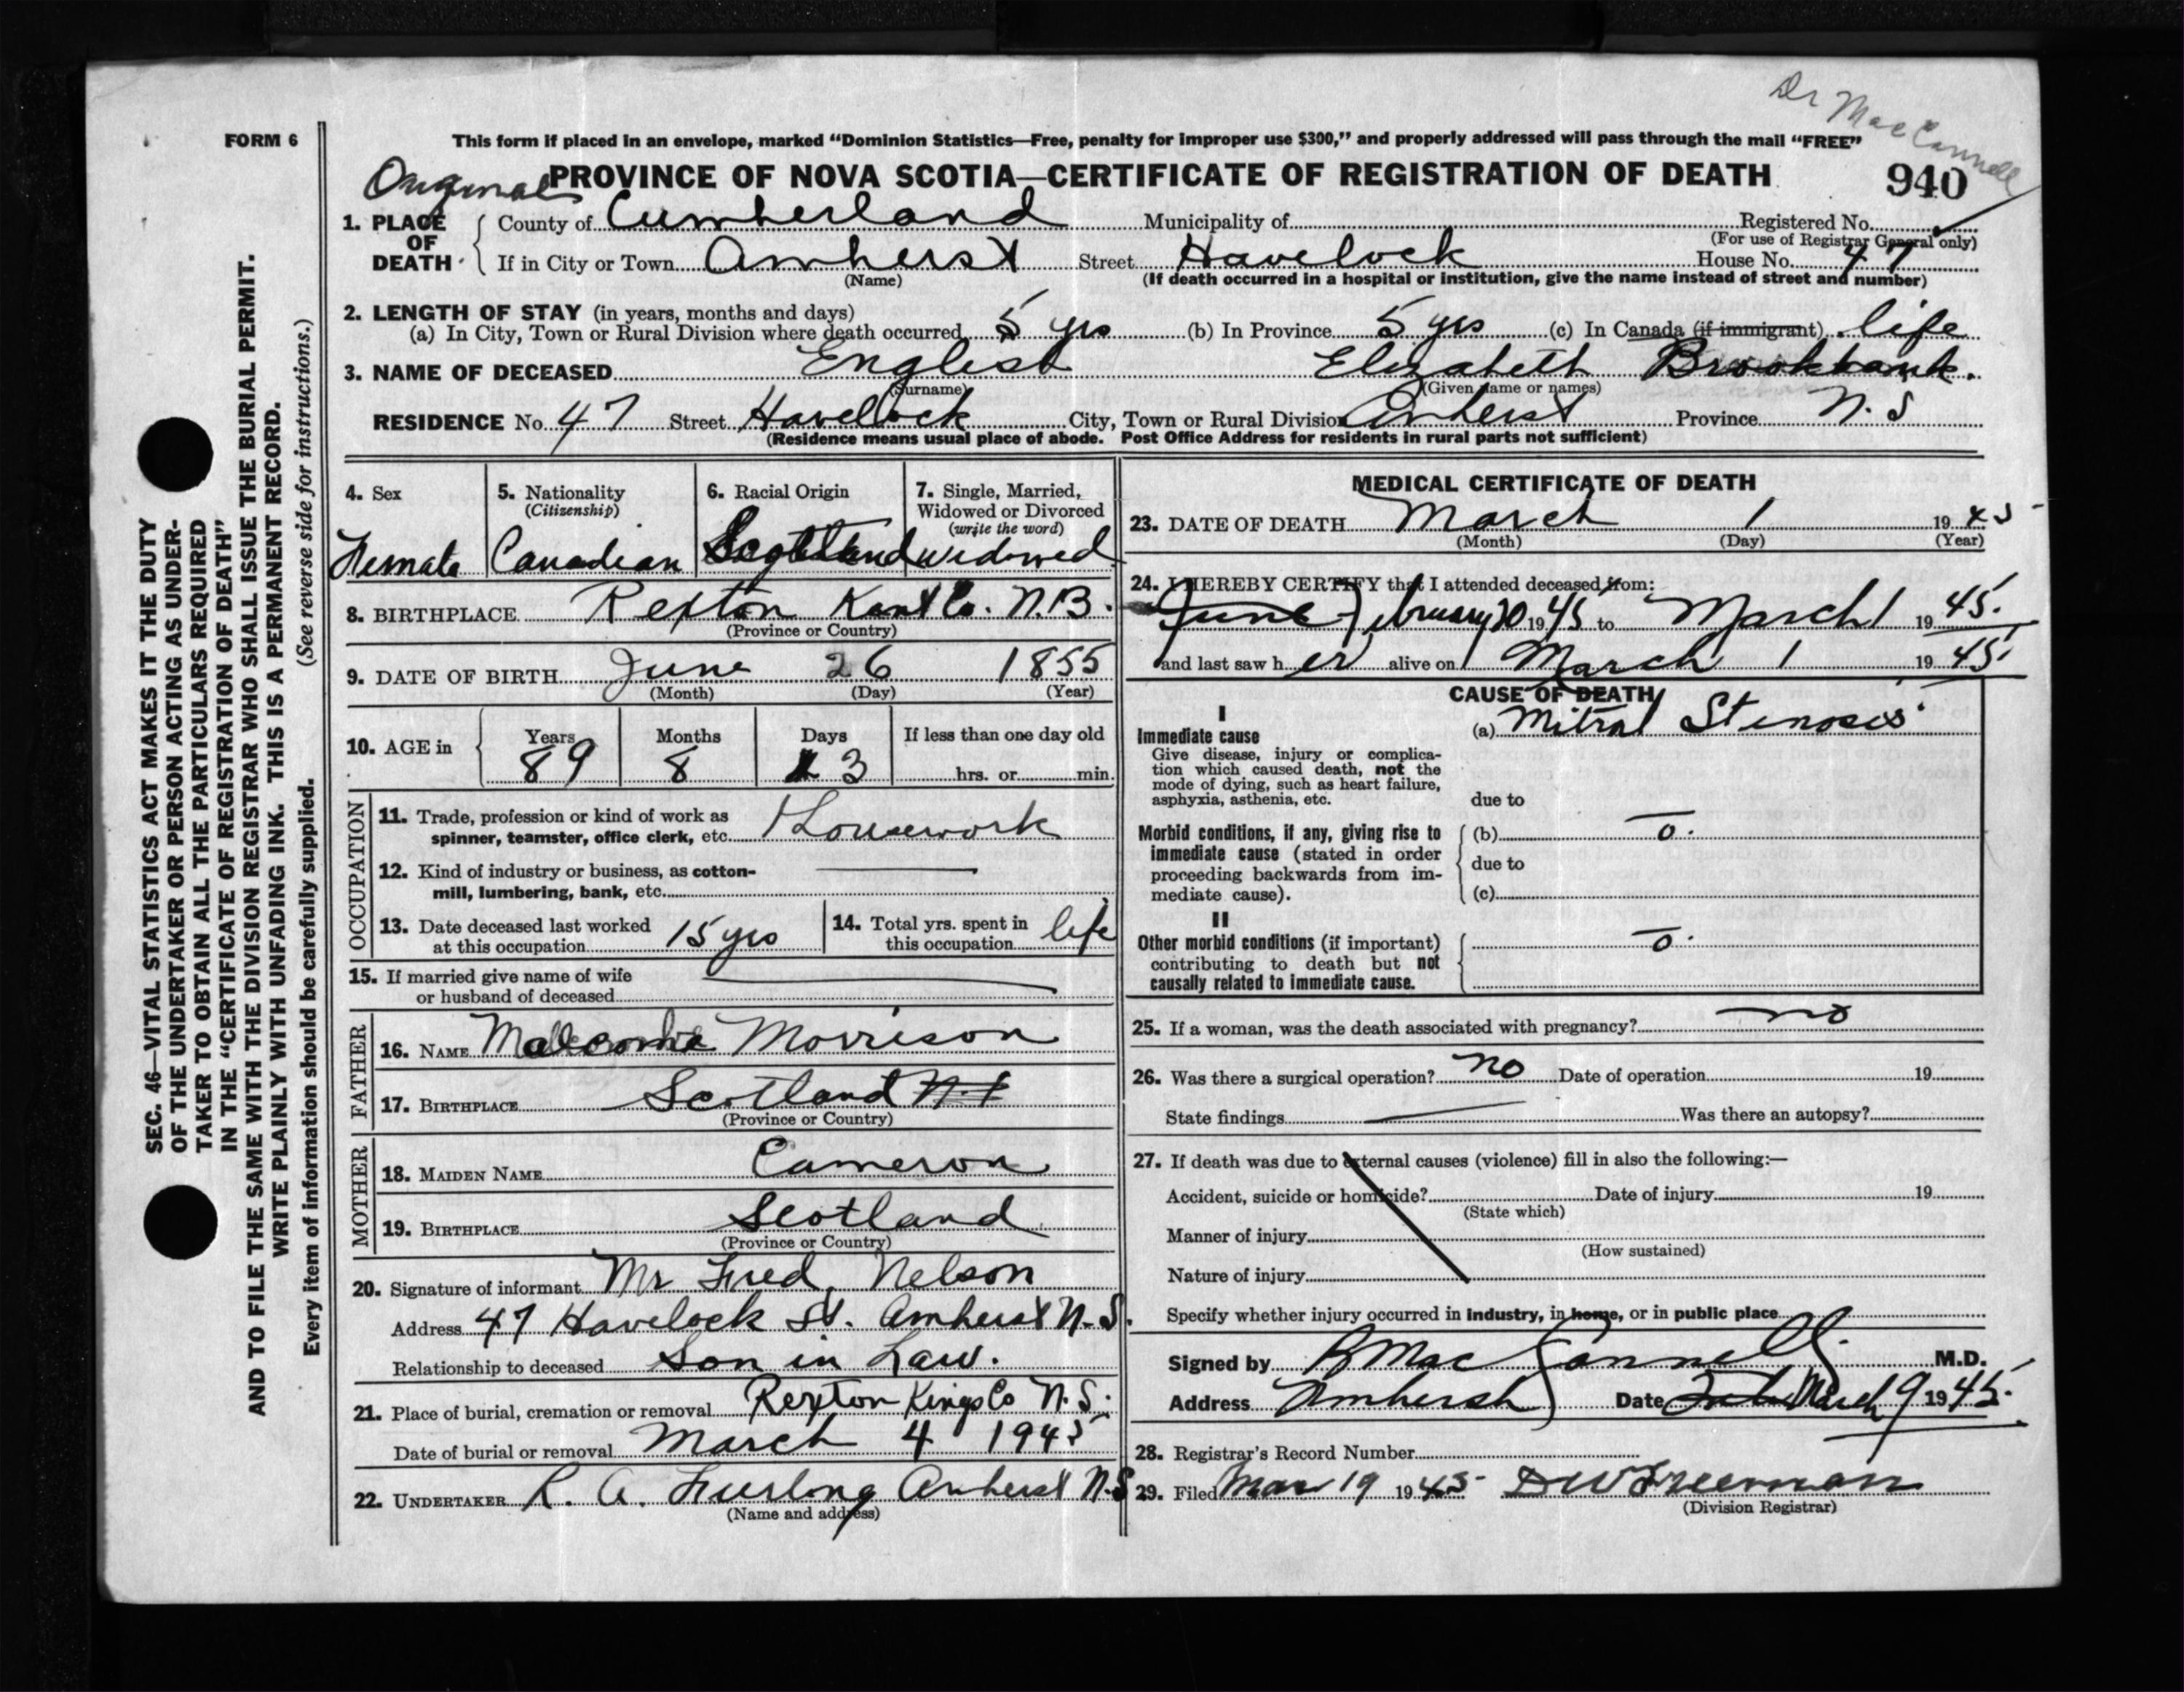 Dr MacConnell
FORM 6
This form if placed in an envelope, marked "Dominion Statistics—Free, penalty for improper use $300," and properly addressed will pass through the mail "FREE"
Original PROVINCE OF NOVA SCOTIA—CERTIFICATE OF REGISTRATION OF DEATH 940
1. PLACE OF DEATH County of Cumberland Municipality of Registered No.
(For use of Registrar General only)
If in City or Town Amherst Street Havelock House No. 47
(Name) (If death occurred in a hospital or institution, give the name instead of street and number)
2. LENGTH OF STAY (in years, months and days)
(a) In City, Town or Rural Division where death occurred 5 yrs (b) In Province 5 yrs (c) In Canada (if immigrant) life
3. NAME OF DECEASED English Elizabeth Brookbank.
(Surname) (Given name or names)
RESIDENCE No. 47 Street Havelock City, Town or Rural Division Amherst Province N.S
(Residence means usual place of abode. Post Office Address for residents in rural parts not sufficient)
4. Sex 5. Nationality (Citizenship) 6. Racial Origin 7. Single, Married, Widowed or Divorced (write the word)
Female Canadian Scotland widowed.
8. BIRTHPLACE Rexton Kent Co. N.B.
(Province or Country)
9. DATE OF BIRTH June 26 1855
(Month) (Day) (Year)
10. AGE in Years Months Days If less than one day old
89 8 3 hrs. or min.
OCCUPATION
11. Trade, profession or kind of work as spinner, teamster, office clerk, etc. Housework
12. Kind of industry or business, as cotton-mill, lumbering, bank, etc.
13. Date deceased last worked at this occupation 15 yrs 14. Total yrs. spent in this occupation life
15. If married give name of wife or husband of deceased
FATHER
16. NAME Malcolm Morrison
17. BIRTHPLACE Scotland
(Province or Country)
MOTHER
18. MAIDEN NAME Cameron
19. BIRTHPLACE Scotland
(Province or Country)
20. Signature of informant Mr Fred Nelson
Address 47 Havelock St. Amherst N.S.
Relationship to deceased Son in Law.
21. Place of burial, cremation or removal Rexton Kings Co N.S.
Date of burial or removal March 4 1945
22. UNDERTAKER R. A. Furlong Amherst N.S
(Name and address)
MEDICAL CERTIFICATE OF DEATH
23. DATE OF DEATH March 1 1945
(Month) (Day) (Year)
24. I HEREBY CERTIFY that I attended deceased from:
June February 20 1945 to March 1 1945.
and last saw her alive on March 1 1945
CAUSE OF DEATH
I
Immediate cause (a) Mitral Stenosis
Give disease, injury or complica-
tion which caused death, not the
mode of dying, such as heart failure,
asphyxia, asthenia, etc. due to
Morbid conditions, if any, giving rise to (b) o.
immediate cause (stated in order due to
proceeding backwards from im-
mediate cause). (c)
II
Other morbid conditions (if important) o.
contributing to death but not
causally related to immediate cause.
25. If a woman, was the death associated with pregnancy? no
26. Was there a surgical operation? no Date of operation 19
State findings Was there an autopsy?
27. If death was due to external causes (violence) fill in also the following:—
Accident, suicide or homicide? Date of injury 19
(State which)
Manner of injury
(How sustained)
Nature of injury
Specify whether injury occurred in industry, in home, or in public place
Signed by MacConnell M.D.
Address Amherst Date March 9 1945.
28. Registrar's Record Number
29. Filed Mar 19 1945 DW Freeman
(Division Registrar)
SEC. 46—VITAL STATISTICS ACT MAKES IT THE DUTY
OF THE UNDERTAKER OR PERSON ACTING AS UNDER-
TAKER TO OBTAIN ALL THE PARTICULARS REQUIRED
IN THE "CERTIFICATE OF REGISTRATION OF DEATH"
AND TO FILE THE SAME WITH THE DIVISION REGISTRAR WHO SHALL ISSUE THE BURIAL PERMIT.
WRITE PLAINLY WITH UNFADING INK. THIS IS A PERMANENT RECORD.
Every item of information should be carefully supplied. (See reverse side for instructions.)